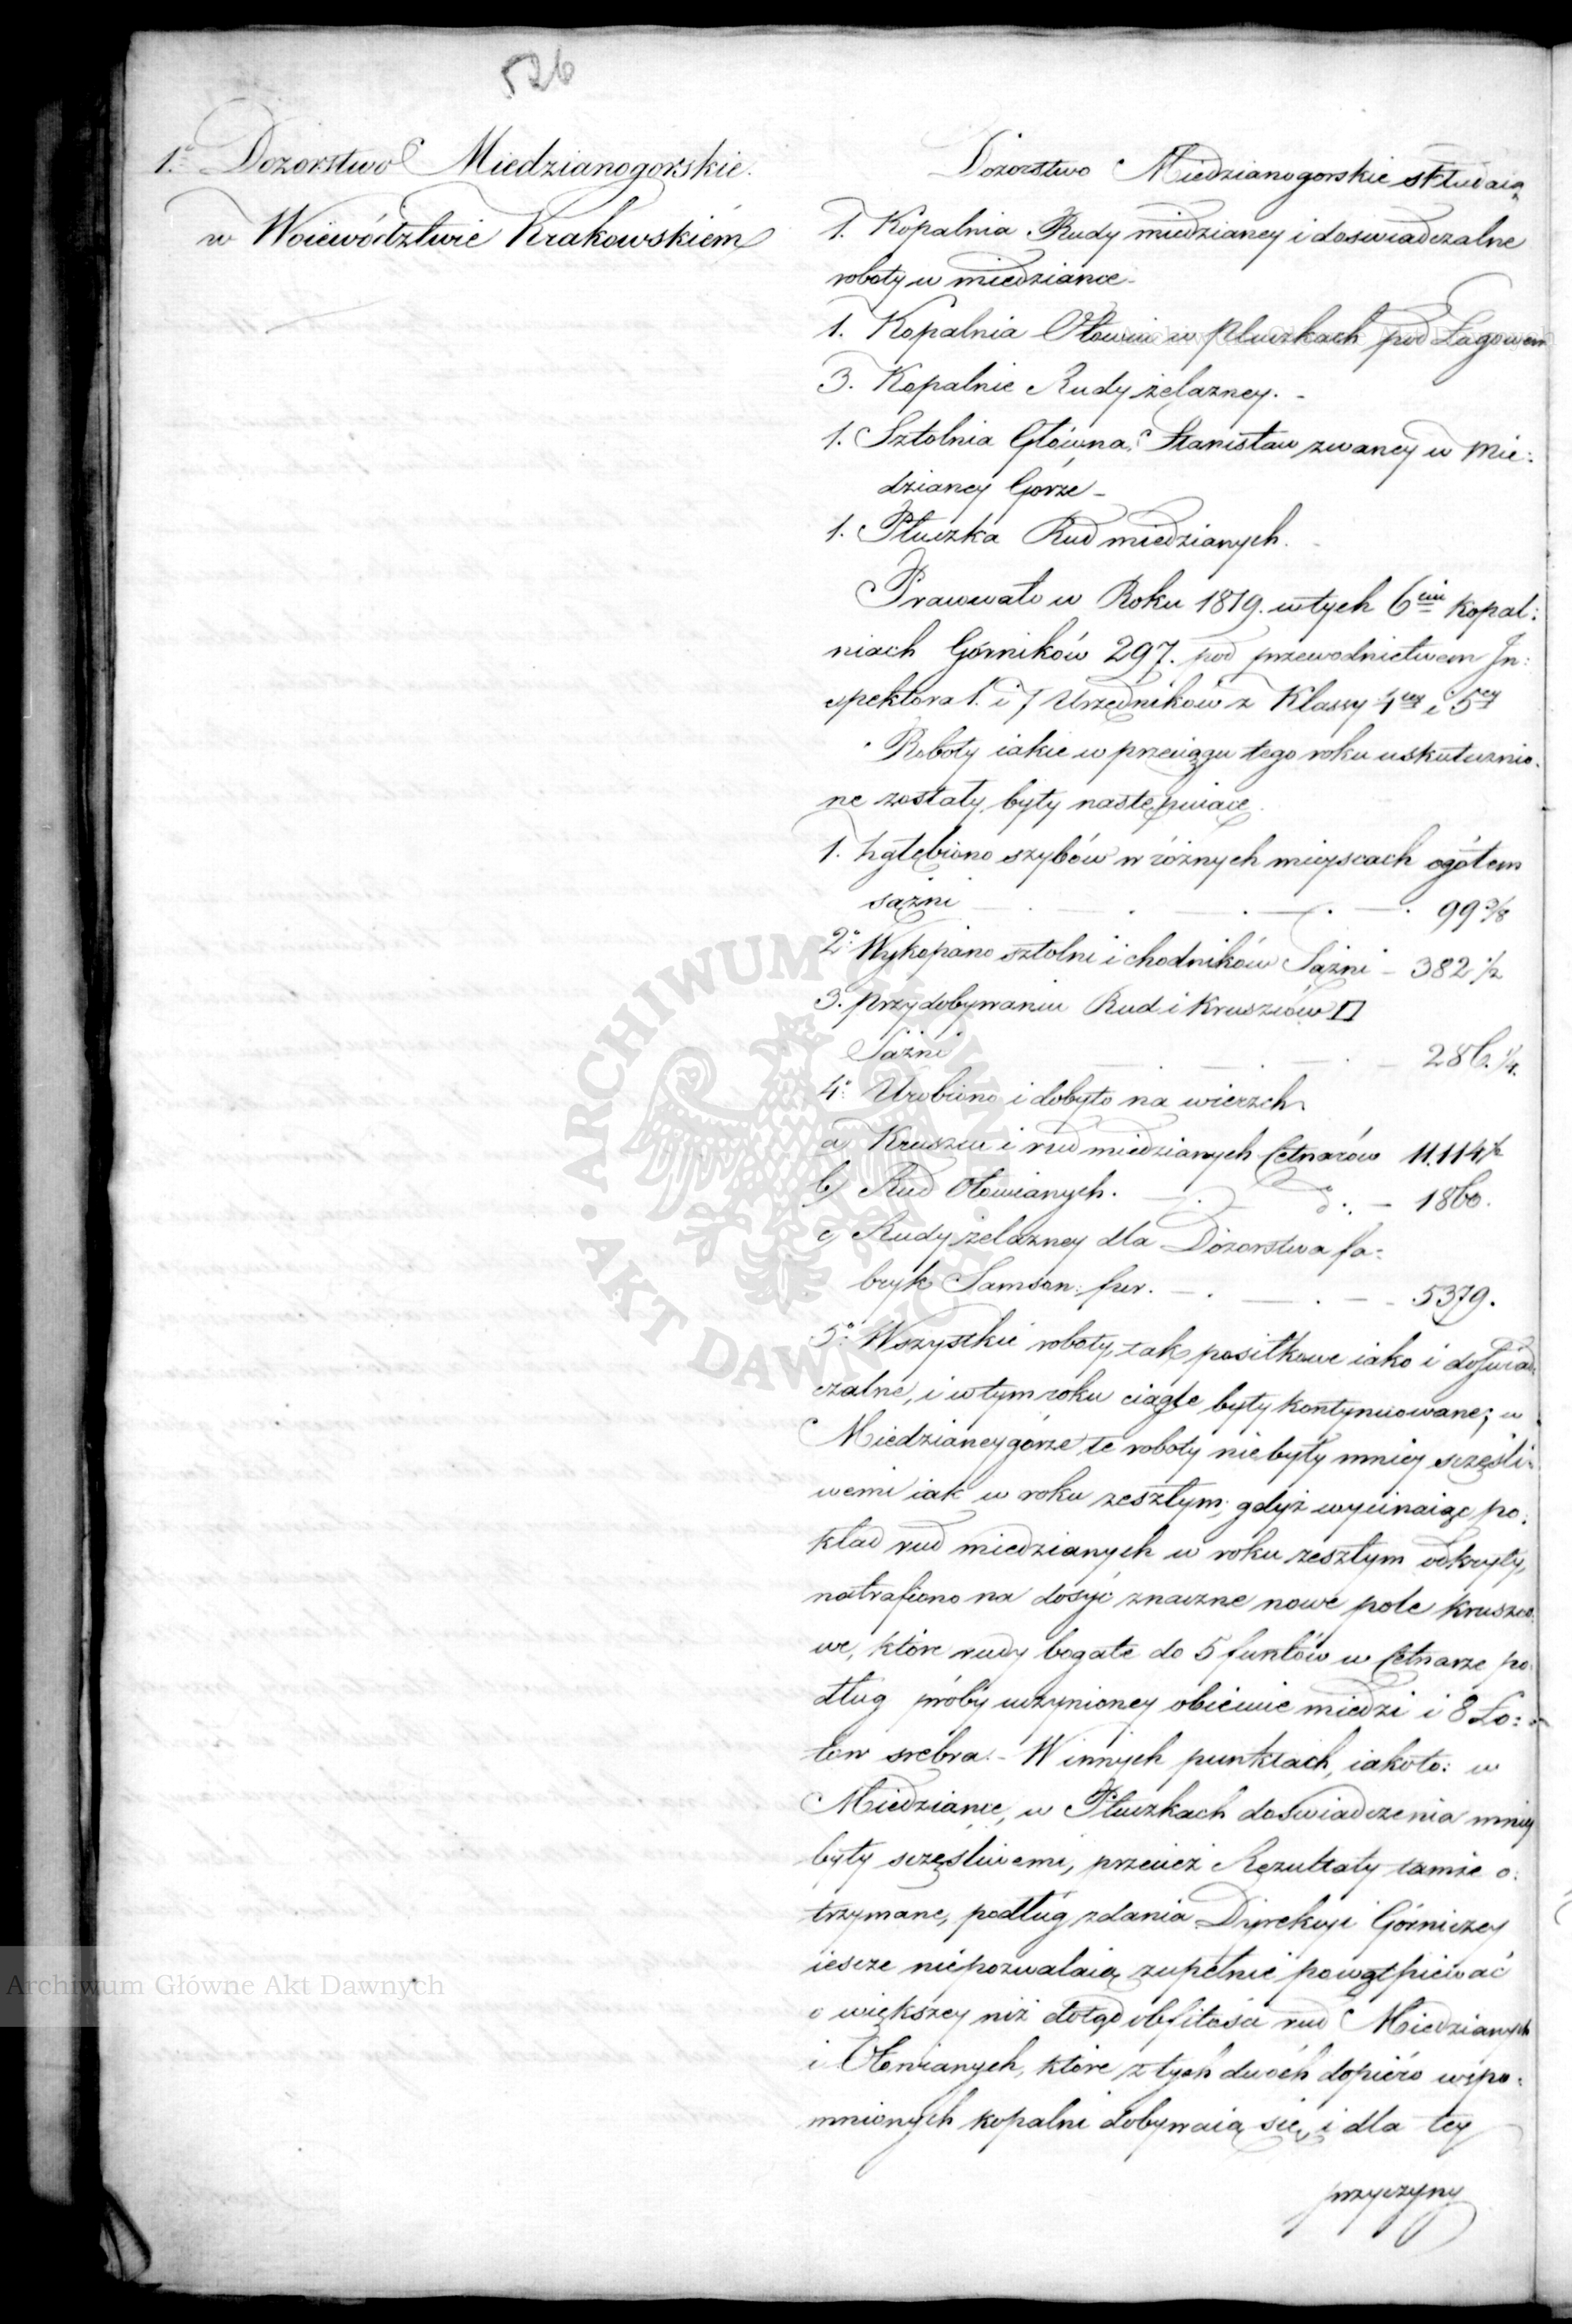 526
1.° Dozorstwo Miedzianogorskie.
w Woiewództwie Krakowskiém
Dozorstwo Miedzianogorskie składaią
1. Kopalnia Rudy miedzianey i doswiadczalne
roboty w miedziance -
1. Kopalnia Ołowiu w Płuczkach pod Łagowem
3. Kopalnie Rudy żelazney. -
1. Sztolnia Główna, Stanisław zwaney w Mie:
dzianey Górze -
1. Płuczka Rud miedzianych. -
Pracowało w Roku 1819. w tych 6ciu kopal:
niach Górników 297. pod przewodnictwem In:
spektora 1. i 7 Urzędników z Klassy 4tey i 5tey
Roboty iakie w przeciągu tego roku uskutecznio:
ne zostały, były następuiące.
1. Zgłębiono szybów w różnych mieyscach ogółem
sążni — . — . — . — . 99 3/8
2.° Wykopano sztolni i chodników Sążni - 382 1/2
3. przy dobywaniu Rud i Kruszców □
Sążni — . — . — 286. 1/4.
4.° Urobiono i dobyto na wierzch
a) Kruszcu i rud miedzianych Cetnarów 11.114 1/2
b) Rud Ołowianych. — . — d°. - 1860.
c) Rudy żelazney dla Dozorstwa fa:
bryk Samson: fur. — . — . — - 5379.
5.° Wszystkie roboty, tak posiłkowe iako i doświad:
czalne, i w tym roku ciągle były kontynuowane; w
Miedzianeygórze te roboty nie były mniey szczęśli:
wemi iak w roku zeszłym, gdyż wycinaiąc po:
kład rud miedzianych w roku zeszłym odkryty,
natrafiono na dosyć znaczne nowe pole kruszco:
we, które rudy bogate do 5 funtów w Cetnarze po:
dług próby uczynioney obiecuie miedzi i 8 Ło:
tów srebra. - W innych punktach, iakoto: w
Miedziance, w Płuczkach doświadczenia mniey
były szczęśliwemi, przecież Rezultaty tamże o:
trzymane, podług zdania Dyrekcyi Górniczey
iescze niepozwalaią zupełnie powątpiewać
o większey niż dotąd obfitości rud Miedzianych
i Ołowianych, które z tych dwóch dopiéro wspo:
mnionych kopalni dobywaią się, i dla tey
przyczyny
ARCHIWUM GŁÓWNE · AKT DAWNYCH ·
Archiwum Główne Akt Dawnych